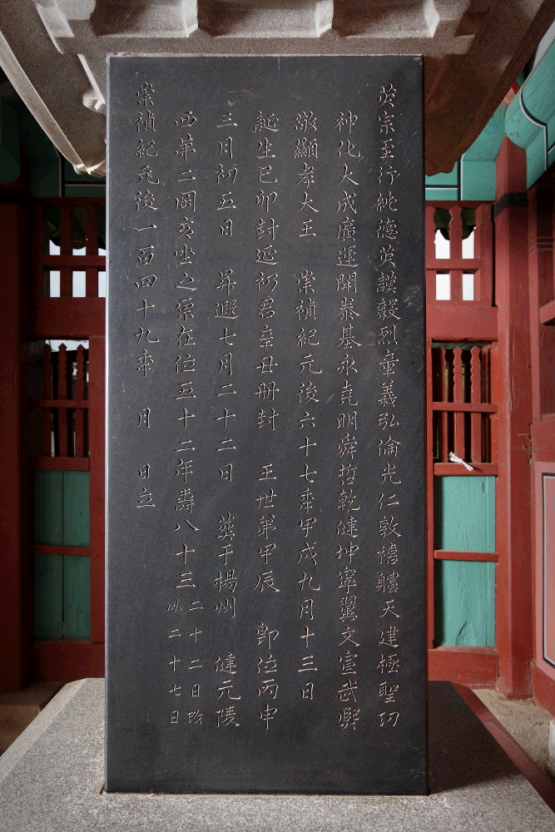 英宗至行純德英謨毅烈章義弘倫光仁敦禧體天建極聖功
神化大成廣運開泰基永堯明舜哲乾健坤寧翼文宣武熙
敬顯孝大王 崇禎紀元後六十七年甲戌九月十三日
誕生己卯封延礽君辛丑冊封 王世弟甲辰 卽位丙申
三月初五日 昇遐七月二十二日 葬于楊州 健元陵
西第二岡亥坐之原在位五十二年壽八十三 二十二日改以二十七日
崇禎紀元後一百四十九年 月 日立